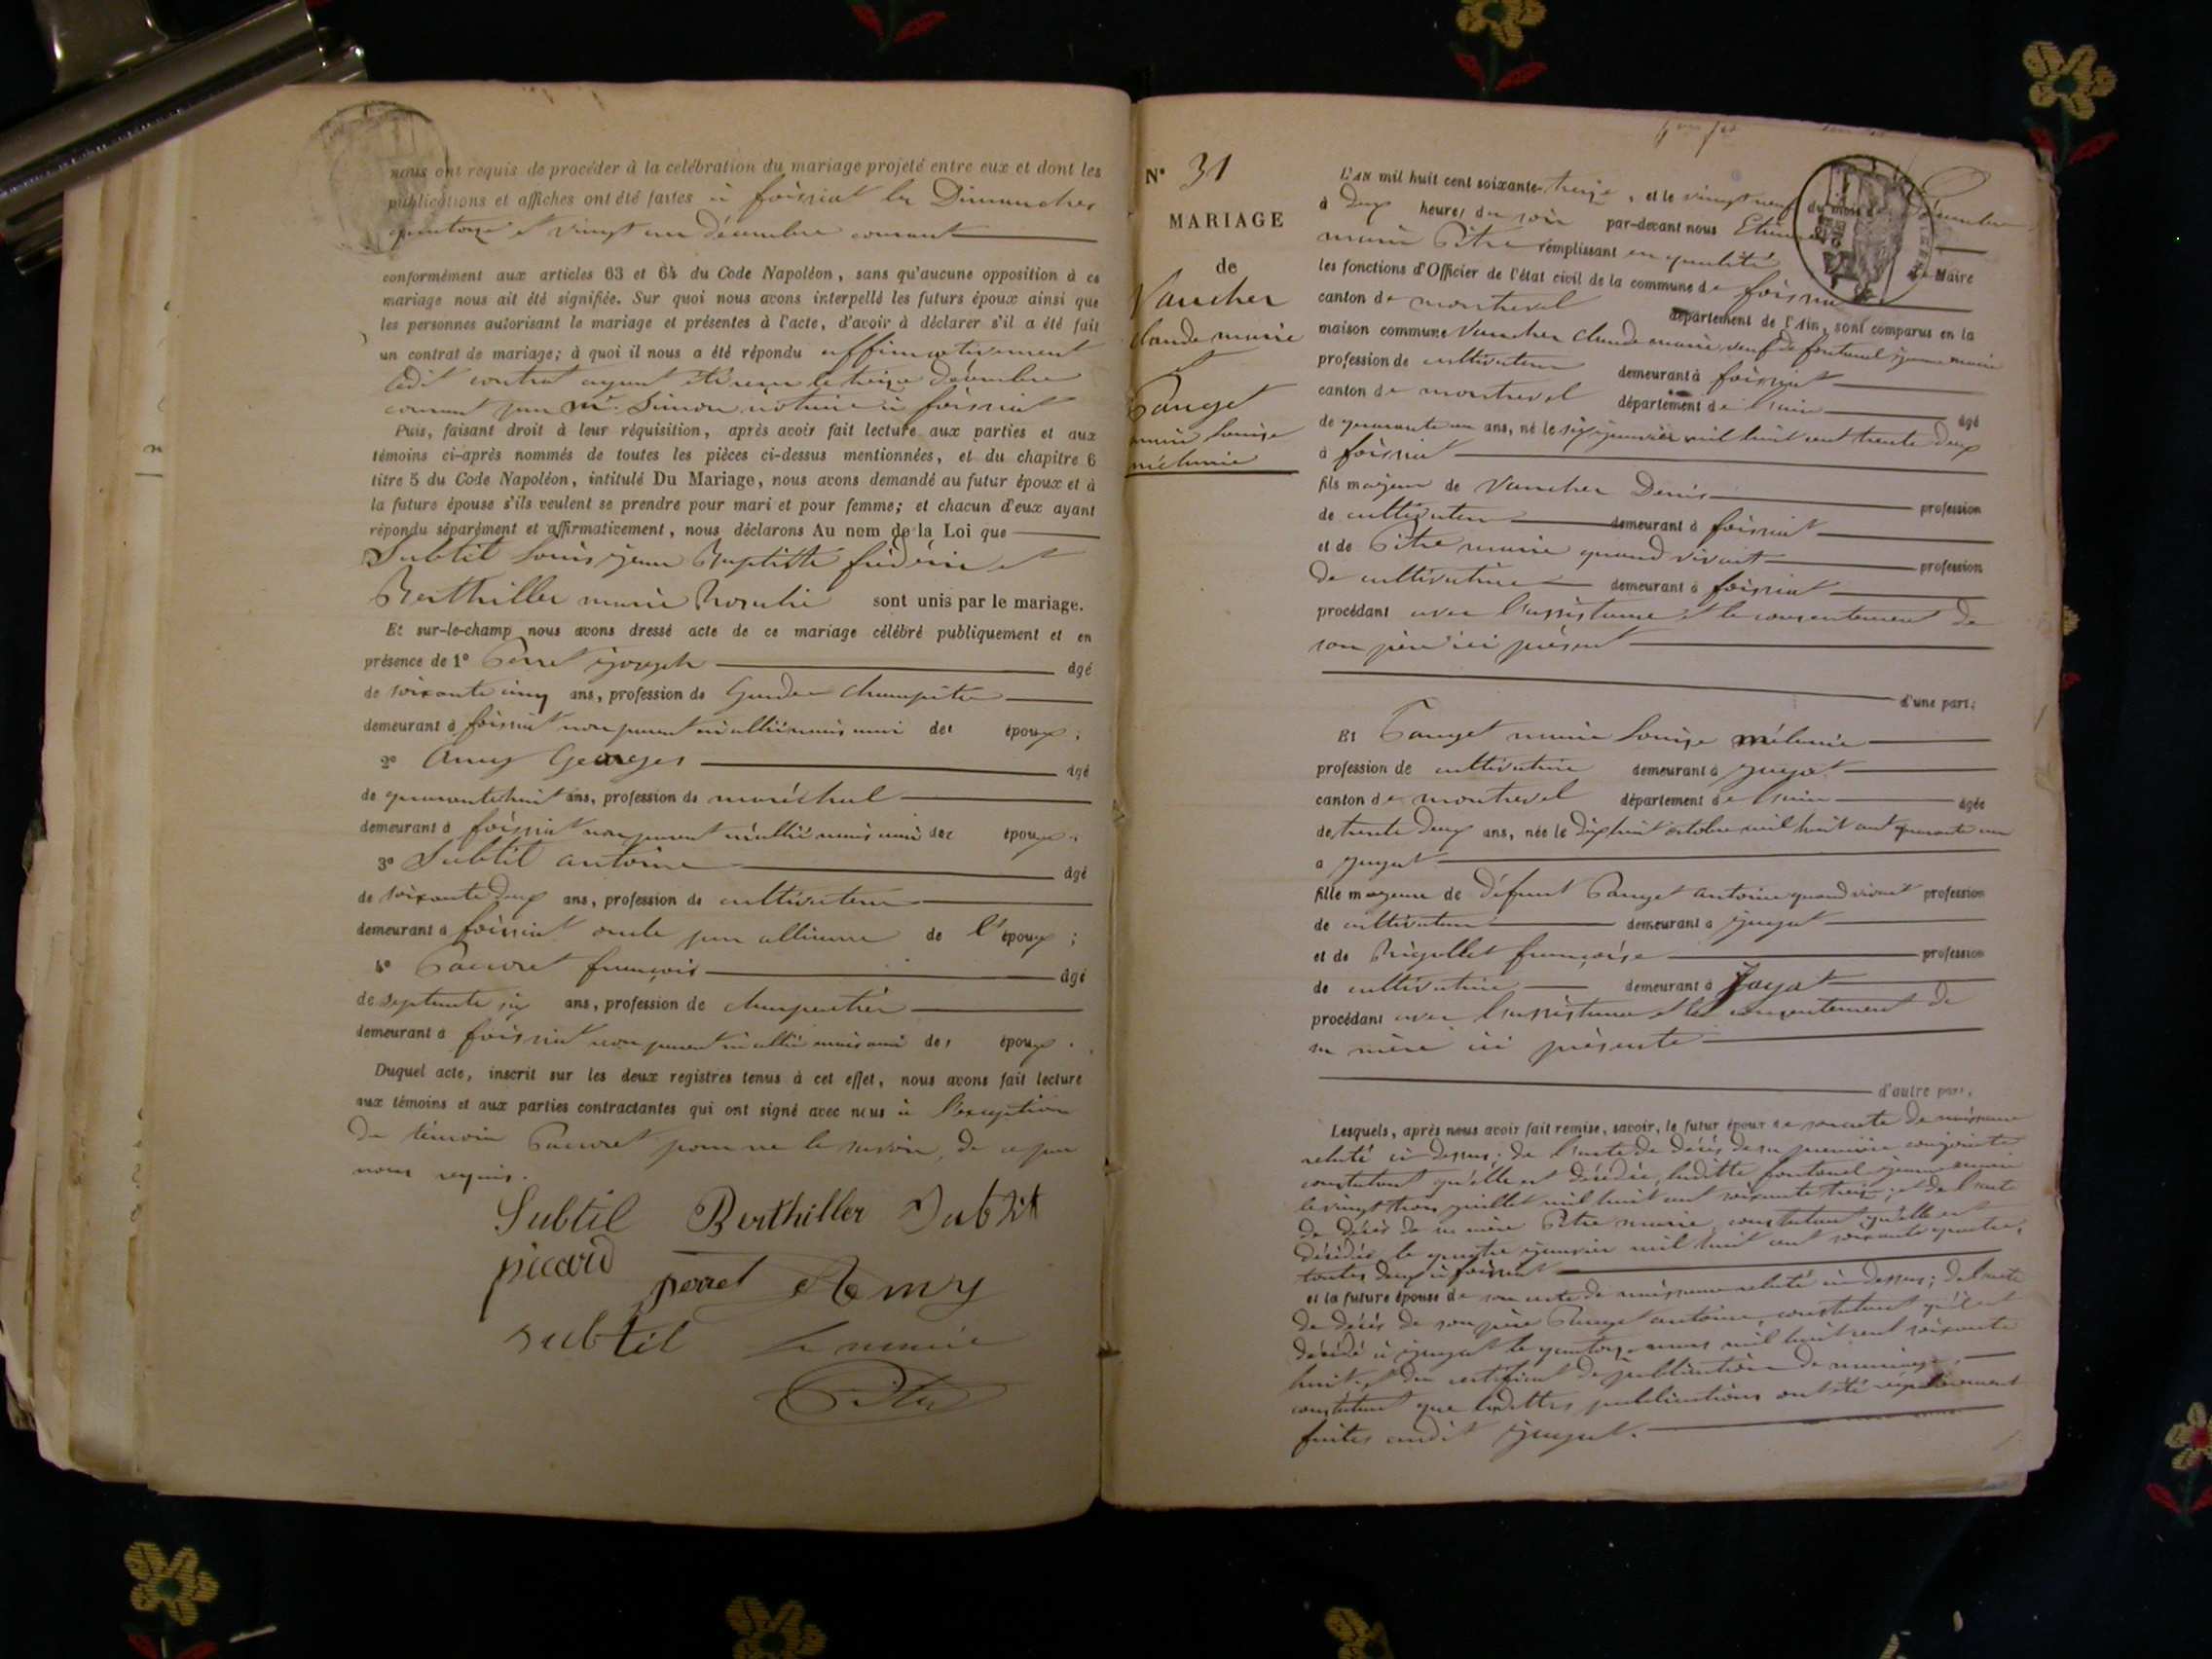 nous ont requis de procéder à la celébration du mariage projeté entre eux et dont les
publications et affiches ont été faites à foissiat les Dimanches
quatorze et vingt un décembre courant
conformément aux articles 63 et 64 du Code Napoléon, sans qu'aucune opposition à ce
mariage nous ait été signifiée. Sur quoi nous avons interpellé les futurs époux ainsi que
les personnes autorisant le mariage et présentes à l'acte, d'avoir à déclarer s'il a été fait
un contrat de mariage; à quoi il nous a été répondu affirmativement
ledit contrat ayant été reçu le treize décembre
courant par Me. Simon notaire à foissiat
Puis, faisant droit à leur réquisition, après avoir fait lecture aux parties et aux
témoins ci-après nommés de toutes les pièces ci-dessus mentionnées, et du chapitre 6
titre 5 du Code Napoléon, intitulé Du Mariage, nous avons demandé au futur époux et à
la future épouse s'ils veulent se prendre pour mari et pour femme; et chacun d'eux ayant
répondu séparément et affirmativement, nous déclarons Au nom de la Loi que
Subtil Louis jean Baptiste frédéric et
Berthiller marie Rosalie sont unis par le mariage.
Et sur-le-champ nous avons dressé acte de ce mariage célébré publiquement et en
présence de 1° Perret joseph âgé
de soixante cinq ans, profession de Garde Champêtre
demeurant à foissiat non parent ni allié mais ami des époux;
2° Amy Georges âgé
de quarante huit ans, profession de maréchal
demeurant à foissiat non parent ni allié mais ami des époux.
3° Subtil antoine âgé
de soixante deux ans, profession de cultivateur
demeurant à foissiat oncle par alliance de l'époux;
4° Pauvret françois âgé
de septante six ans, profession de charpentier
demeurant à foissiat non parent ni allié mais ami des époux.
Duquel acte, inscrit sur les deux registres tenus à cet effet, nous avons fait lecture
aux témoins et aux parties contractantes qui ont signé avec nous à l'exception
du témoin Pauvret pour ne le savoir, de ce par
nous requis.
Subtil Berthiller Subtil
picard perret Amy
subtil Le maire
Pitre
N° 31
MARIAGE
de
Vaucher
claude marie
et
Pauget
marie Louise
mélanie
L'an mil huit cent soixante-treize, et le vingt neuf du mois de Décembre
à Deux heures du soir par-devant nous Etienne
marie Pitre remplissant en qualité de Maire
les fonctions d'Officier de l'état civil de la commune de foissiat
canton de montrevel département de l'Ain, sont comparus en la
maison commune Vaucher claude marie veuf de fontanel jeanne marie
profession de cultivateur demeurant à foissiat
canton de montrevel département de l'ain âgé
de quarante un ans, né le six janvier mil huit cent trente deux
à foissiat
fils majeur de Vaucher Denis profession
de cultivateur demeurant à foissiat
et de Pitre marie quand vivait profession
de cultivatrice demeurant à foissiat
procédant avec l'assistance et le consentement de
son père ici présent
d'une part;
Et Pauget marie Louise mélanie
profession de cultivatrice demeurant à jayat
canton de montrevel département de l'ain âgée
de trente deux ans, née le dix huit octobre mil huit cent quarante un
à jayat
fille majeure de défunt Pauget antoine quand vivait profession
de cultivateur demeurant à jayat
et de Rigollet françoise profession
de cultivatrice demeurant à Jayat
procédant avec l'assistance et le consentement de
sa mère ici présente
d'autre part.
Lesquels, après nous avoir fait remise, savoir, le futur époux de son acte de naissance
relaté ci dessus; de l'acte de décès de sa première conjointe
constatant qu'elle est décédée, ladite fontanel jeanne marie
le vingt trois juillet mil huit cent soixante treize; et de l'acte
de décès de sa mère Pitre marie, constatant qu'elle est
décédée le quatre janvier mil huit cent soixante quatre,
toutes deux à foissiat
et la future épouse de son acte de naissance relaté ci dessus; de l'acte
de décès de son père Pauget antoine, constatant qu'il est
décédé à jayat le quatorze mars mil huit cent soixante
huit, et du certificat de publication de mariage,
constatant que lesdittes publications ont été régulièrement
faites audit jayat.